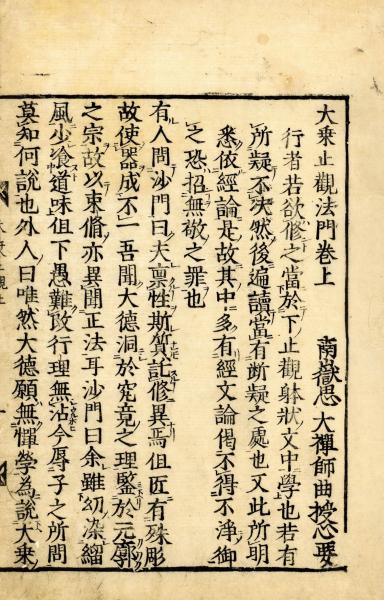 大乗止觀法門卷上　南嶽思大禪師曲授心要
行者若欲修之當於下止觀躰狀文中學也若有
所疑不決然後遍讀當有所疑之處也又此所明
悉依經論是故其中多有經文論偈不得不淨御
之恐招無敬之罪也
有人問沙門曰夫禀性斯質託修異焉但匠有殊彫
故使器成不一吾聞大德洞於究竟之理鑒於元廓
之宗故以束脩亦異聞正法耳沙門曰余雖幼染緇
風少飡道味但下愚難改行理無沾今辱子之所問
莫知何說也外人曰唯然大德願無憚勞為說大乗